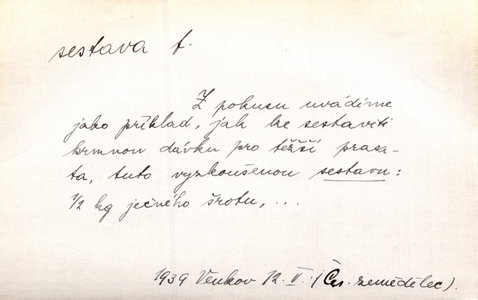 sestava f.
Z pokusu uvádíme
jako příklad, jak lze sestaviti
krmnou dávku pro těžší prasa-
ta, tuto vyzkoušenou sestavu:
1/2 kg ječného šrotu, ...
1939 Venkov 12. II. (Čs. zemědělec).